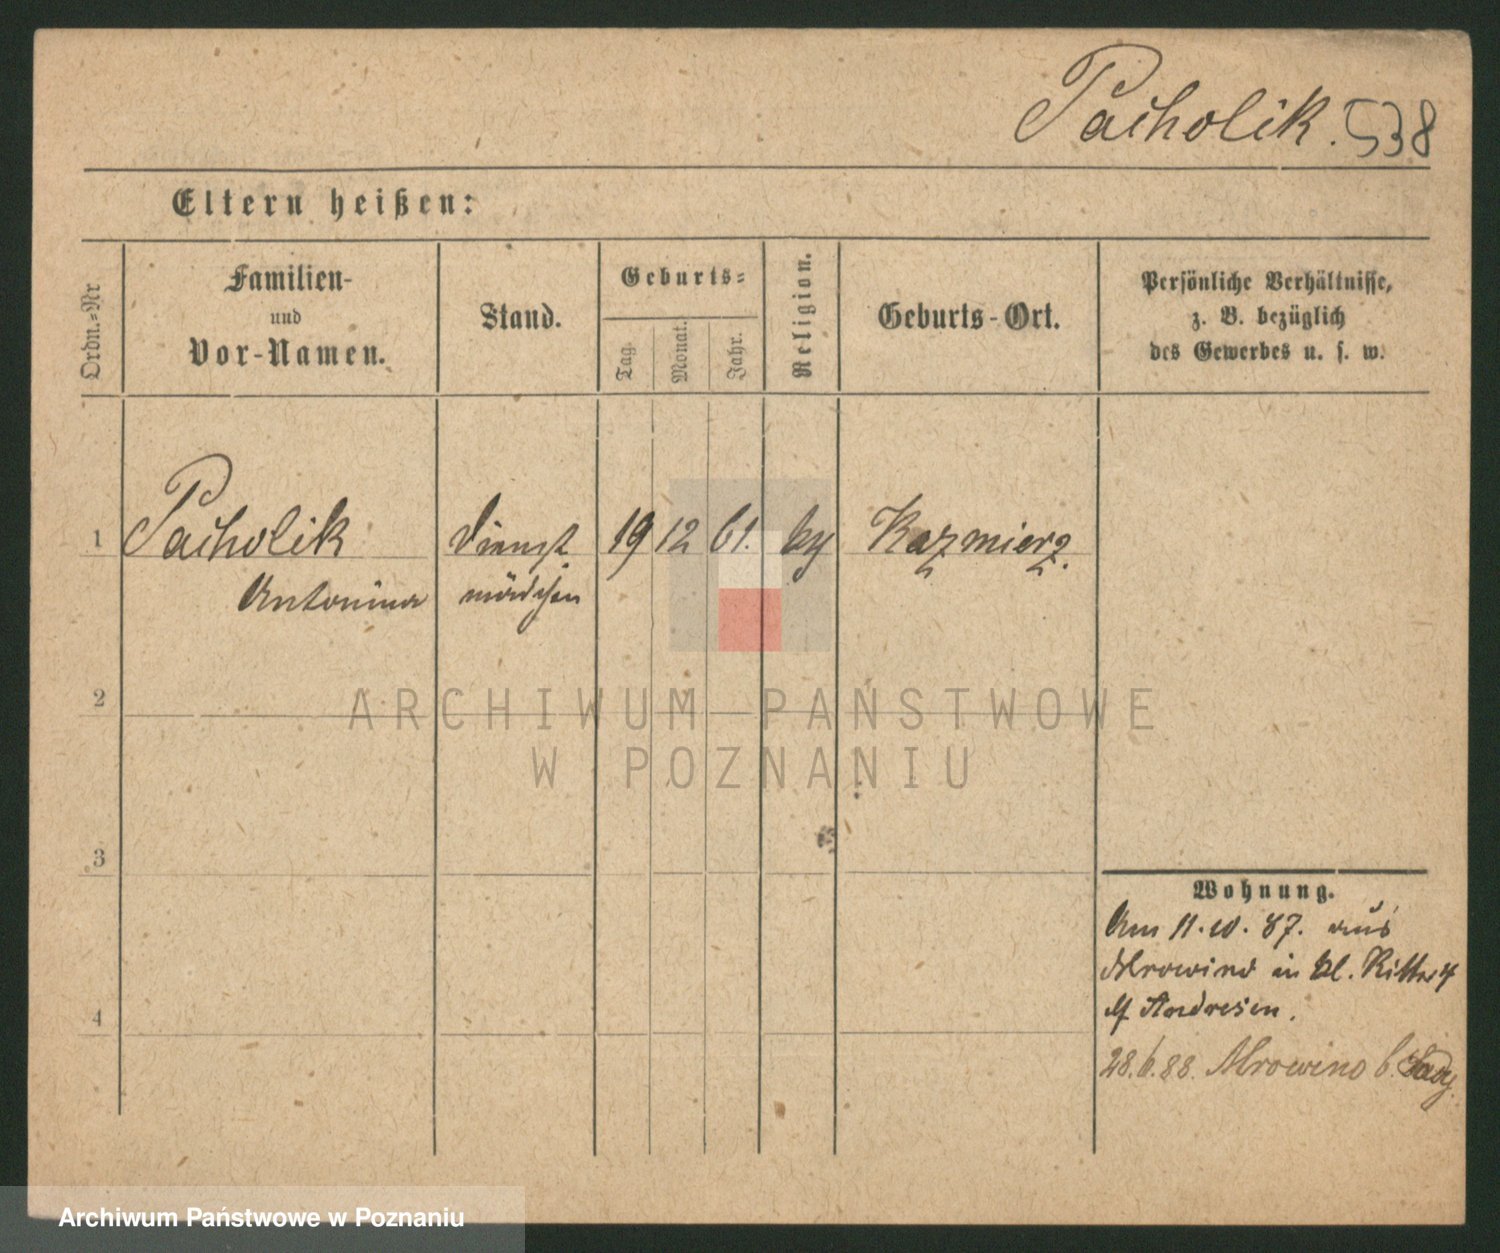 Pacholik. 538
Eltern heißen:
Ordn.-Nr
Familien-
und
Vor-Namen.
Stand.
Geburts-
Tag.
Monat.
Jahr.
Religion.
Geburts-Ort.
Persönliche Verhältnisse,
z. B. bezüglich
des Gewerbes u. s. w.
1 Pacholik Dienst 19 12 61. Kazmierz.
Antonina mädchen
2
ARCHIWUM PAŃSTWOWE
W POZNANIU
3
Wohnung.
Am 11.10.87. aus
Mrowino in kl. Ritterst
4
Andresen.
28.6.88. Mrowino b. Sady.
Archiwum Państwowe w Poznaniu